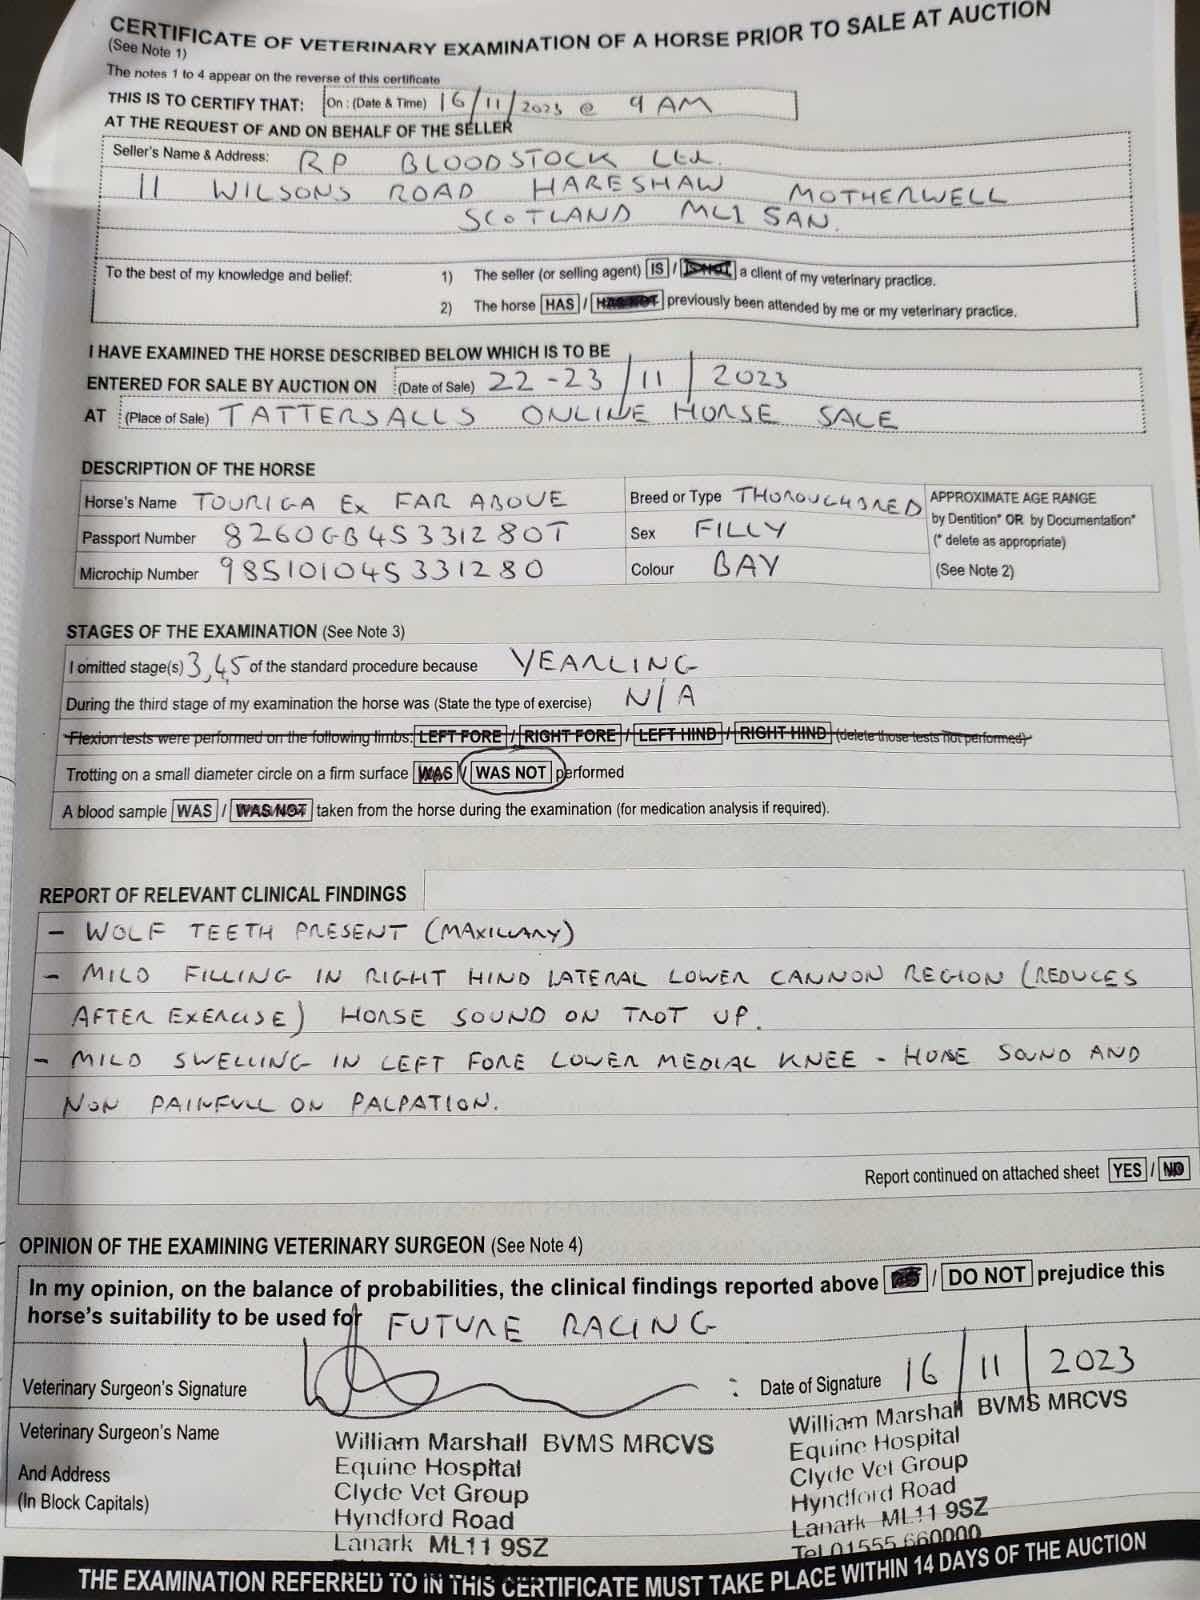 CERTIFICATE OF VETERINARY EXAMINATION OF A HORSE PRIOR TO SALE AT AUCTION
(See Note 1)
The notes 1 to 4 appear on the reverse of this certificate
THIS IS TO CERTIFY THAT: On : (Date & Time) 16/11/2023 @ 9 AM
AT THE REQUEST OF AND ON BEHALF OF THE SELLER
Seller's Name & Address: RP BLOODSTOCK Ltd.
11 WILSONS ROAD HARESHAW MOTHERWELL
SCOTLAND ML1 5AN.
To the best of my knowledge and belief: 1) The seller (or selling agent) IS / IS NOT a client of my veterinary practice.
2) The horse HAS / HAS NOT previously been attended by me or my veterinary practice.
I HAVE EXAMINED THE HORSE DESCRIBED BELOW WHICH IS TO BE
ENTERED FOR SALE BY AUCTION ON (Date of Sale) 22-23/11/2023
AT (Place of Sale) TATTERSALLS ONLINE HORSE SALE
DESCRIPTION OF THE HORSE
Horse's Name TOURIGA Ex FAR ABOVE Breed or Type THOROUGHBRED APPROXIMATE AGE RANGE
Passport Number 8260GB45331280T Sex FILLY by Dentition* OR by Documentation*
(* delete as appropriate)
Microchip Number 985101045331280 Colour BAY (See Note 2)
STAGES OF THE EXAMINATION (See Note 3)
I omitted stage(s) 3,4,5 of the standard procedure because YEARLING
During the third stage of my examination the horse was (State the type of exercise) N/A
Flexion tests were performed on the following limbs: LEFT FORE / RIGHT FORE / LEFT HIND / RIGHT HIND (delete those tests not performed)
Trotting on a small diameter circle on a firm surface WAS / WAS NOT performed
A blood sample WAS / WAS NOT taken from the horse during the examination (for medication analysis if required).
REPORT OF RELEVANT CLINICAL FINDINGS
- WOLF TEETH PRESENT (MAXILLARY)
- MILD FILLING IN RIGHT HIND LATERAL LOWER CANNON REGION (REDUCES
AFTER EXERCISE) HORSE SOUND ON TROT UP.
- MILD SWELLING IN LEFT FORE LOWER MEDIAL KNEE - HORSE SOUND AND
NON PAINFULL ON PALPATION.
Report continued on attached sheet YES / NO
OPINION OF THE EXAMINING VETERINARY SURGEON (See Note 4)
In my opinion, on the balance of probabilities, the clinical findings reported above / DO NOT prejudice this
horse's suitability to be used for FUTURE RACING
Veterinary Surgeon's Signature : Date of Signature 16/11/2023
Veterinary Surgeon's Name
And Address
(In Block Capitals)
William Marshall BVMS MRCVS
Equine Hospital
Clyde Vet Group
Hyndford Road
Lanark ML11 9SZ
William Marshall BVMS MRCVS
Equine Hospital
Clyde Vet Group
Hyndford Road
Lanark ML11 9SZ
Tel 01555 660000
THE EXAMINATION REFERRED TO IN THIS CERTIFICATE MUST TAKE PLACE WITHIN 14 DAYS OF THE AUCTION